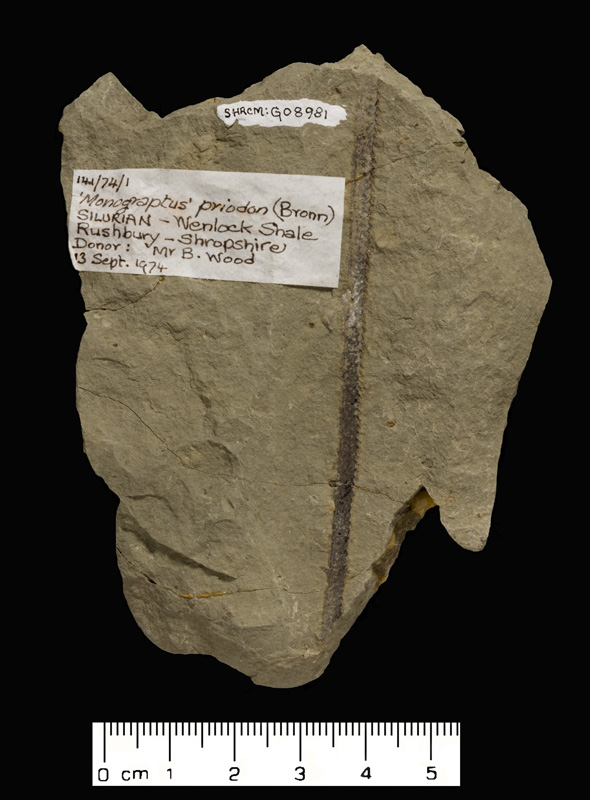 SHRCM:G08981
144/74/1
'Monograptus' priodon (Bronn)
SILURIAN - Wenlock Shale
Rushbury - Shropshire
Donor: Mr B. Wood
13 Sept. 1974
0 cm 1 2 3 4 5